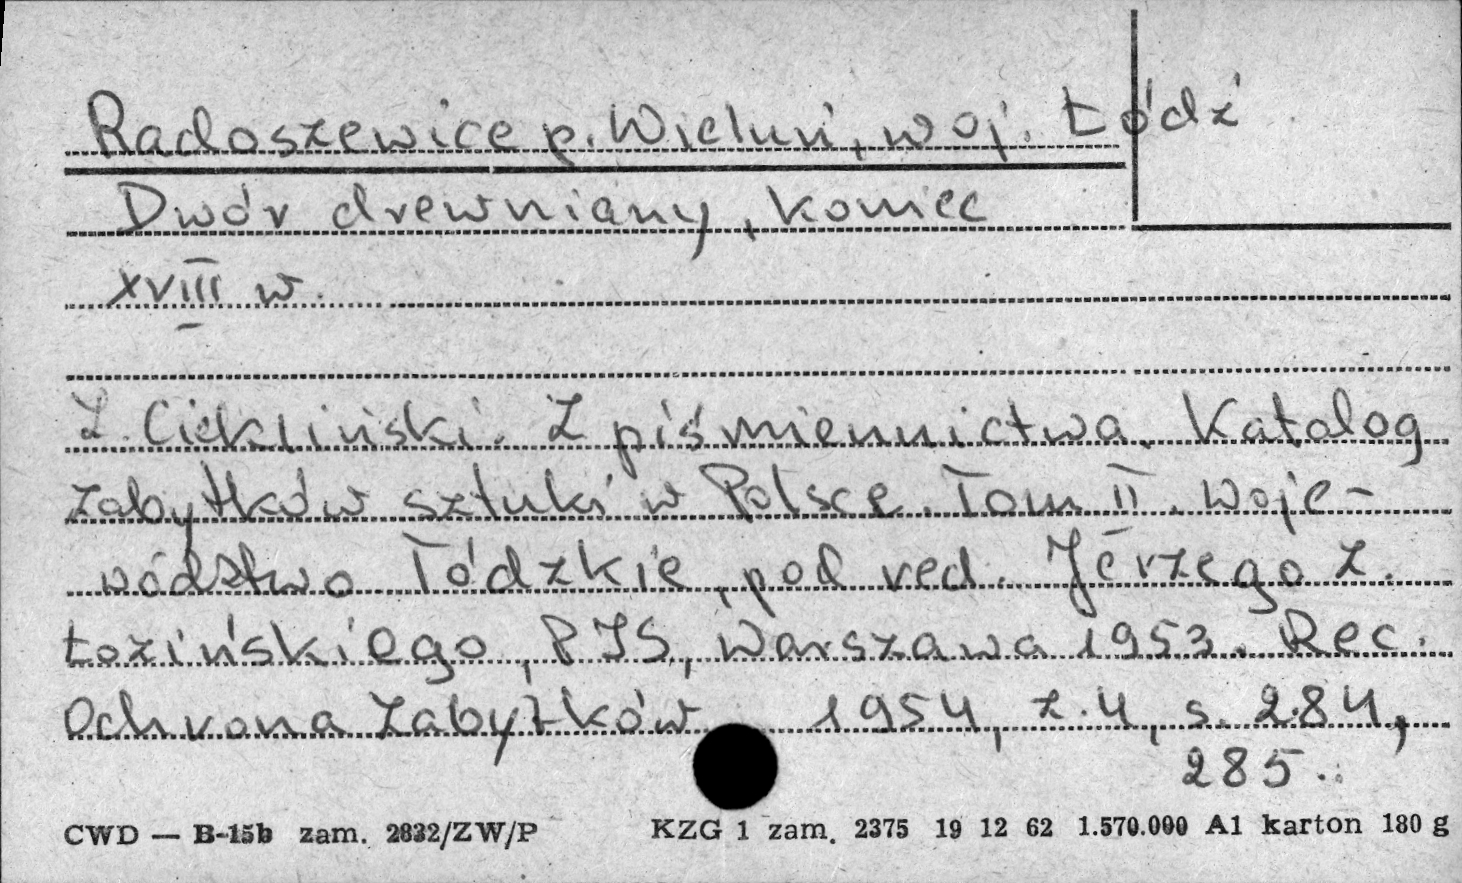 Radoszewice p. Wieluń, woj. Łódź
Dwór drewniany, koniec
XVIII w.
Z. Ciekliński. Z piśmiennictwa. Katalog
zabytków sztuki w Polsce. Tom II. Woje-
wództwo Łódzkie, pod red. Jerzego Z.
Łozińskiego, PIS, Warszawa 1953. Rec.
Ochrona Zabytków 1954, z.4, s. 284,
285.
CWD — B-15b zam. 2832/ZW/P KZG 1 zam. 2375 19 12 62 1.570.000 A1 karton 180 g